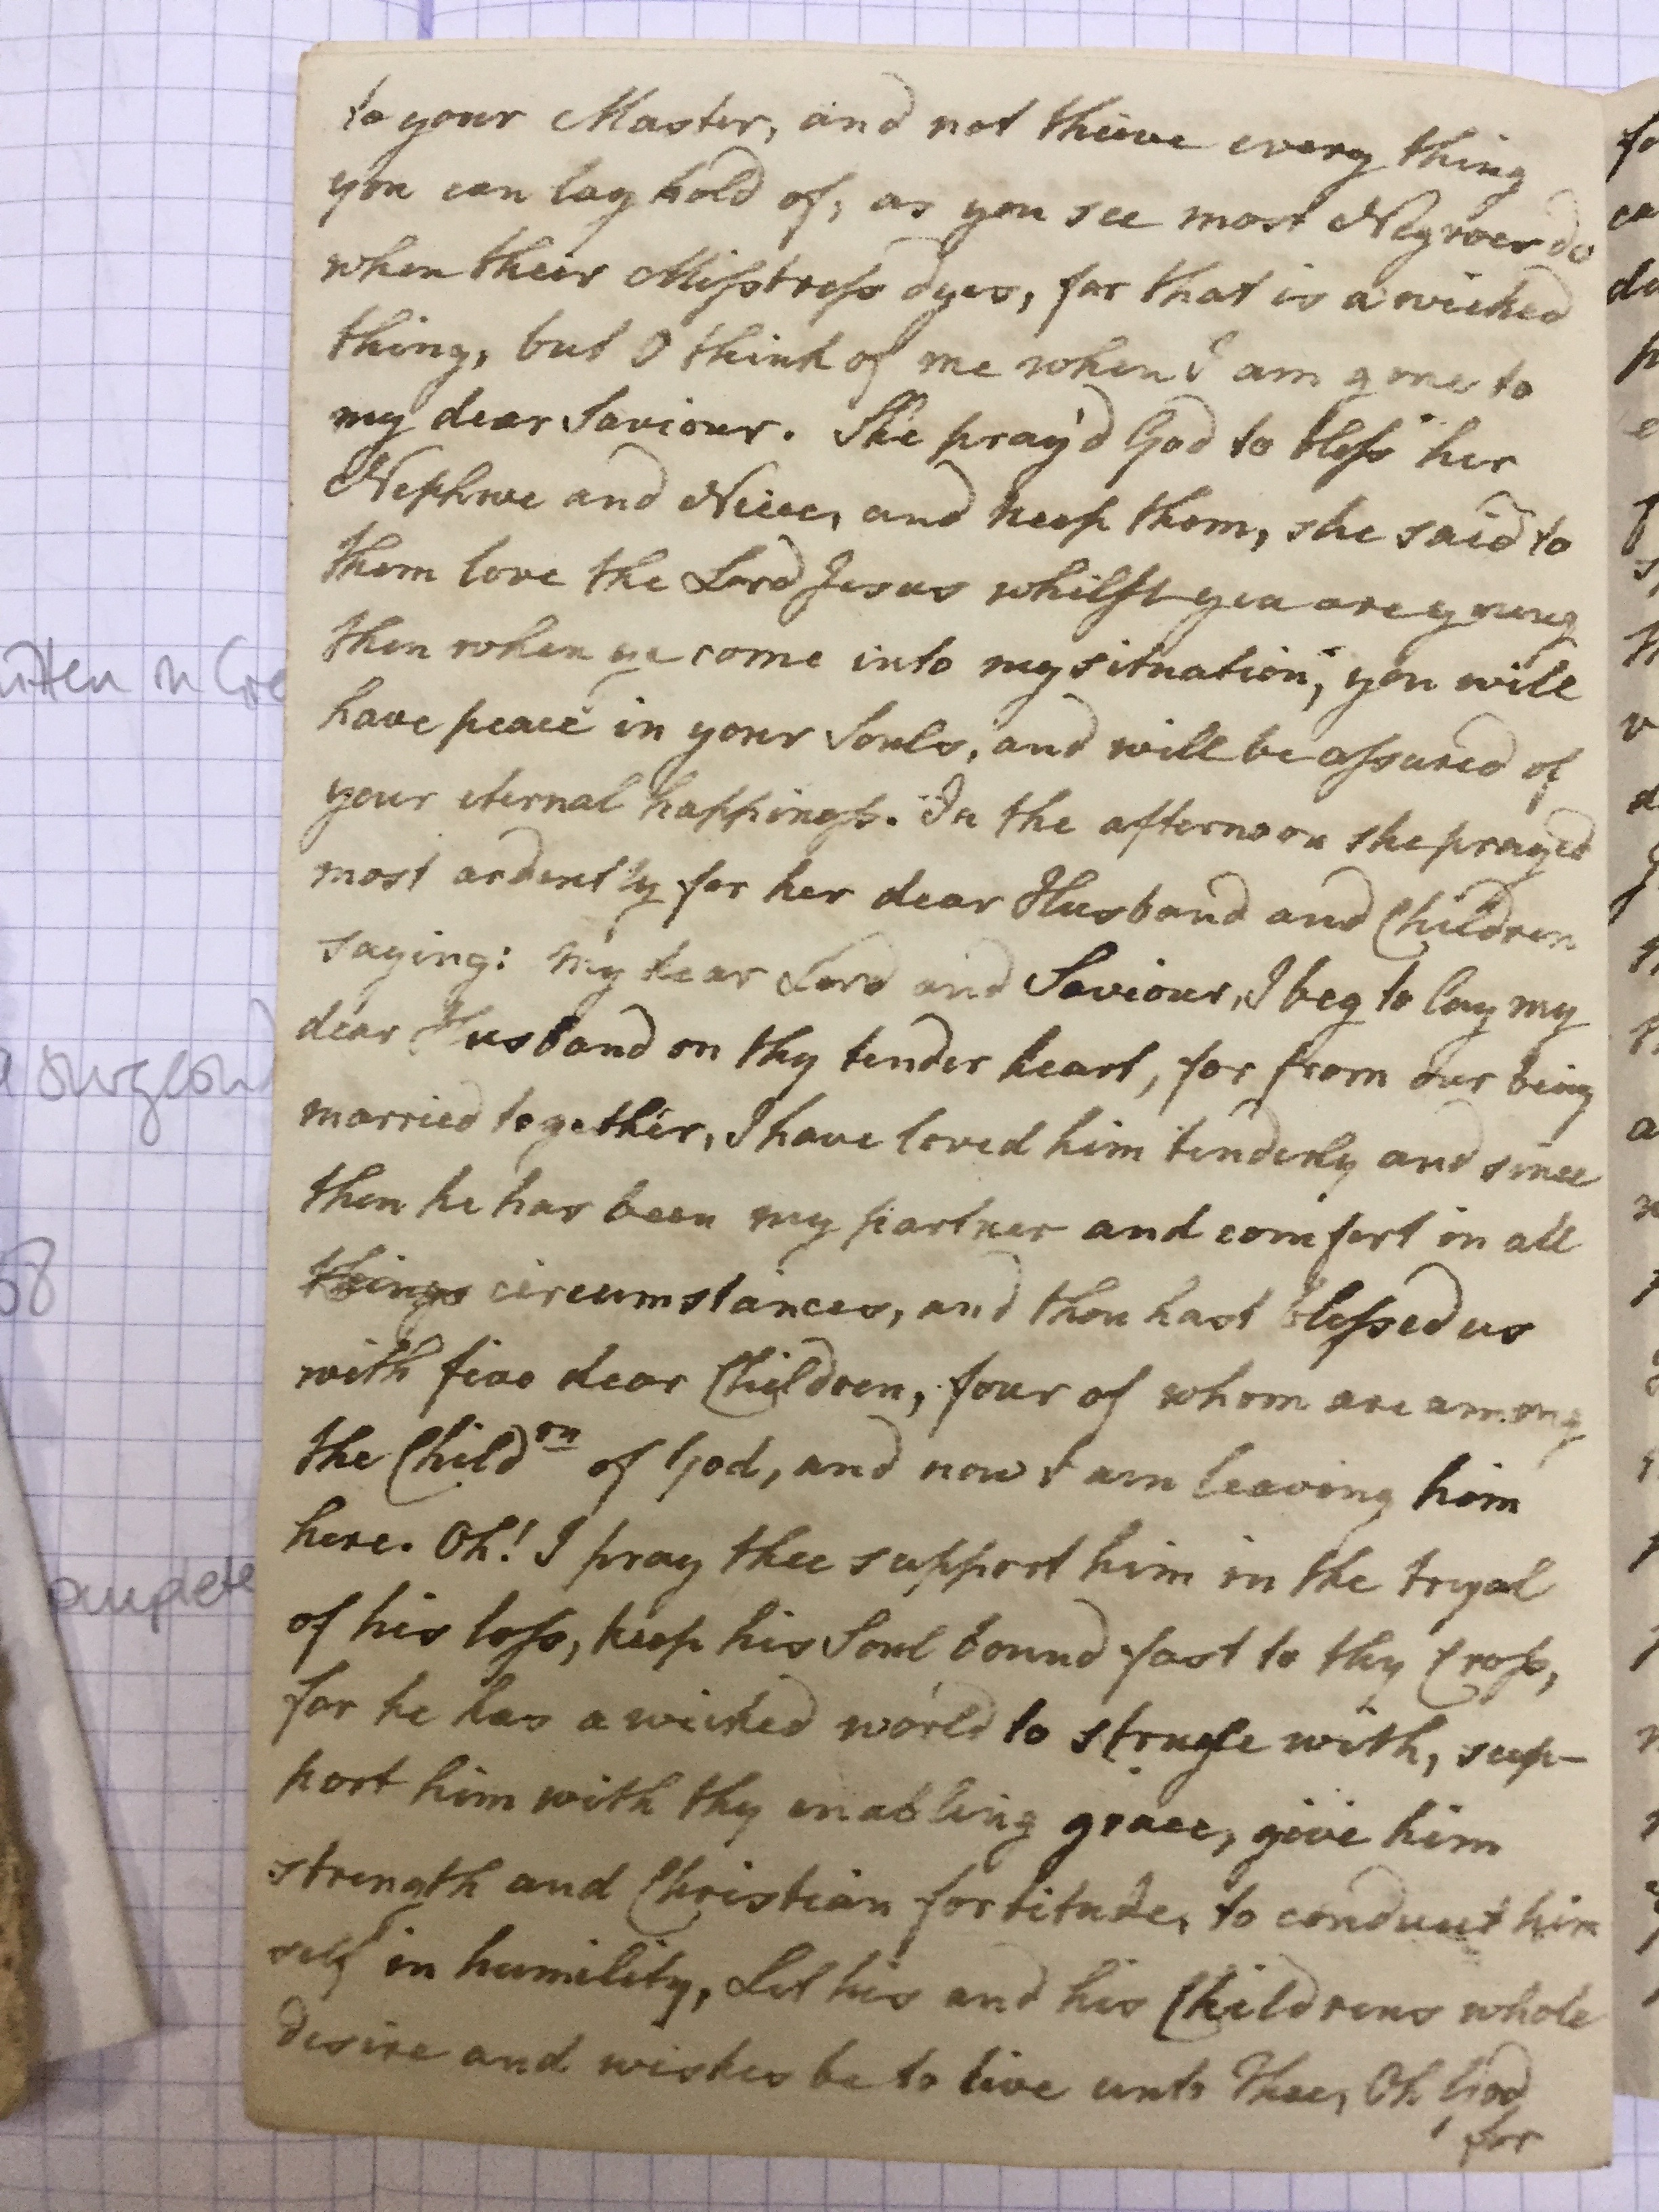 to your Master, and not thieve every thing
you can lay hold of, as you see most Negroes do
when their Misstress dyes, for that is a wicked
thing, but O think of me when I am gone to
my dear Saviour. She pray'd God to bless her
Nephwe and Niece, and keep them, she said to
them love the Lord Jesus whilst you are young
then when ye come into my situation, you will
have peace in your Souls, and will be assured of
your eternal happiness. In the afternoon she prayed
most ardently for her dear Husband and Children
saying: my dear Lord and Saviour, I beg to lay my
dear Husband on thy tender heart, for from our being
married together, I have loved him tenderly and since
then he has been my partner and comfort in all
things circumstances, and thou hast blessed us
with five dear Children, four of whom are among
the Childrn of God, and now I am leaving him
here. Oh! I pray thee support him in the tryal
of his loss, keep his Soul bound fast to thy Cross,
for he has a wicked world to strugle with, sup-
port him with thy enabling grace, give him
strength and Christian fortitude, to conduct him
self in humility, Let his and his Childrens whole
desire and wishes be to live unto Thee, Oh God
for
itten in Cre
surgeon
58